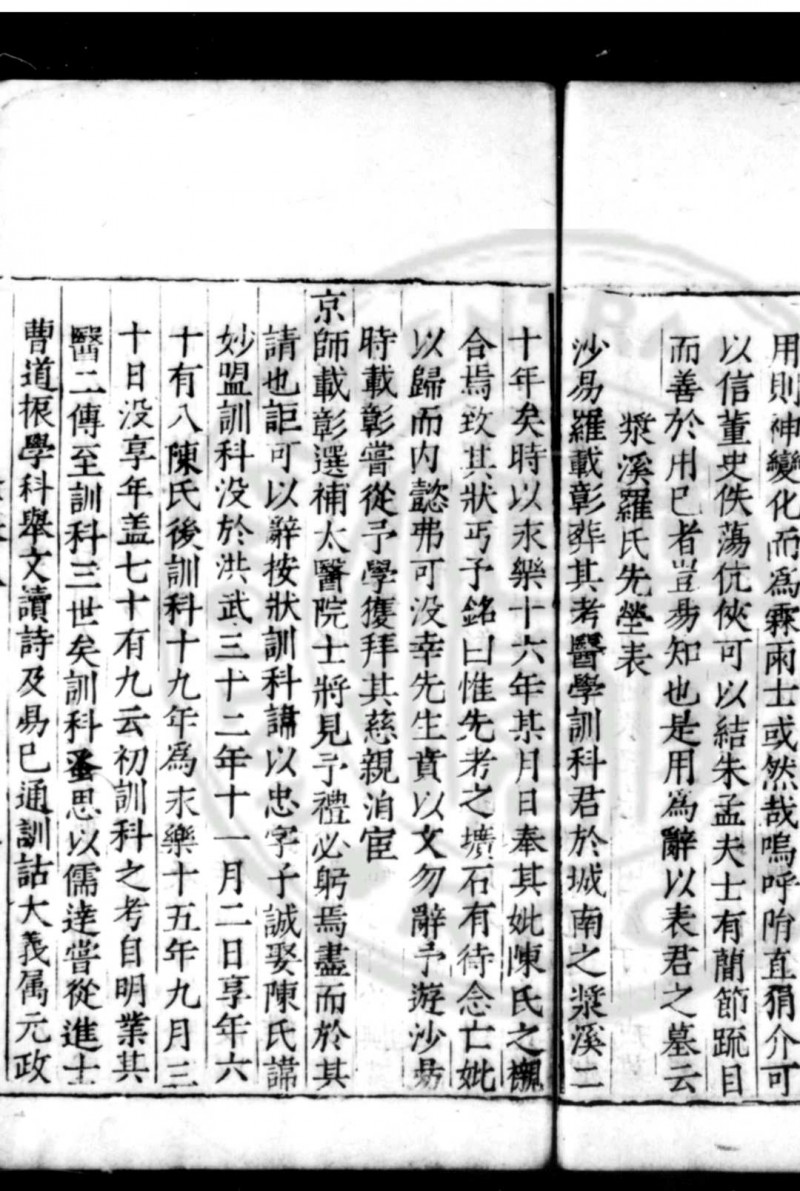 用則神變化而為霖雨士或然哉嗚呼㫷直狷介可
以信董史佚蕩伉俠可以結朱孟夫士有蕳節䟽目
而善於用已者豈昜知也是用為辭以表君之墓云
漿溪羅氏先塋表
沙昜羅載彰葬其考醫學訓科君於城南之漿溪二
十年矣時以永樂十六年某月日奉其妣陳氏之櫬
合焉致其狀丐予銘曰惟先考之壙石有待念亡妣
以歸而内懿弗可没幸先生賁以文勿辭予遊沙昜
時載彰嘗從予學獲拜其慈親洎宦
京師載彰選補太醫院士將見予禮必躬焉盡而於其
請也詎可以辭按狀訓科諱以忠字子誠娶陳氏諱
妙盟訓科没於洪武三十二年十一月二日享年六
十有八陳氏後訓科十九年為永樂十五年九月三
十日没享年盖七十有九云初訓科之考自明業其
醫二傳至訓科三世矣訓科蚤思以儒達嘗從進士
曹道振學科舉文讀詩及昜已通訓詁大義属元政